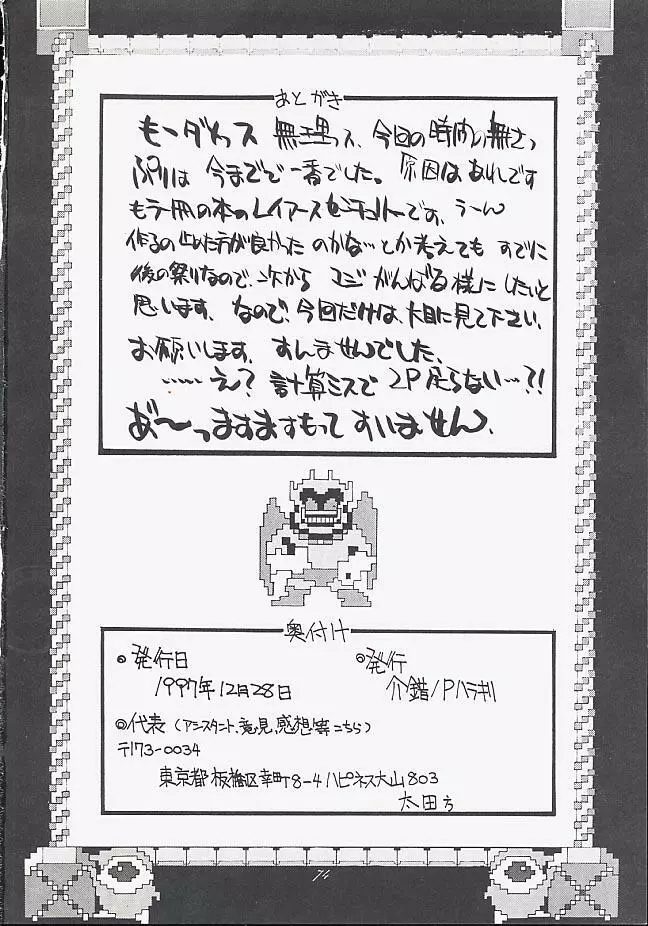 あとがき
もーダめっス 無理っス、今回の時間の無さっ
ぷりは 今までで一番でした。原因はあれです
もう一冊の本のレイアースです、うーん
作るの止めた方が良かった のかな…とか考えても すでに
後の祭りなので、次から マジ がんばる様に したいと
思います、なので、今回だけは、大目に見て下さい、
お願いします、すんませんでした、
……え? 計算ミスで 2P足らない…?!
あ〜っますますもって すいません、
奥付け
発行日
1997年12月28日
発行
介錯/Pハラキリ
代表(アシスタント、意見、感想等こちら)
〒173-0034
東京都板橋区幸町8-4ハピネス大山803
太田方
74